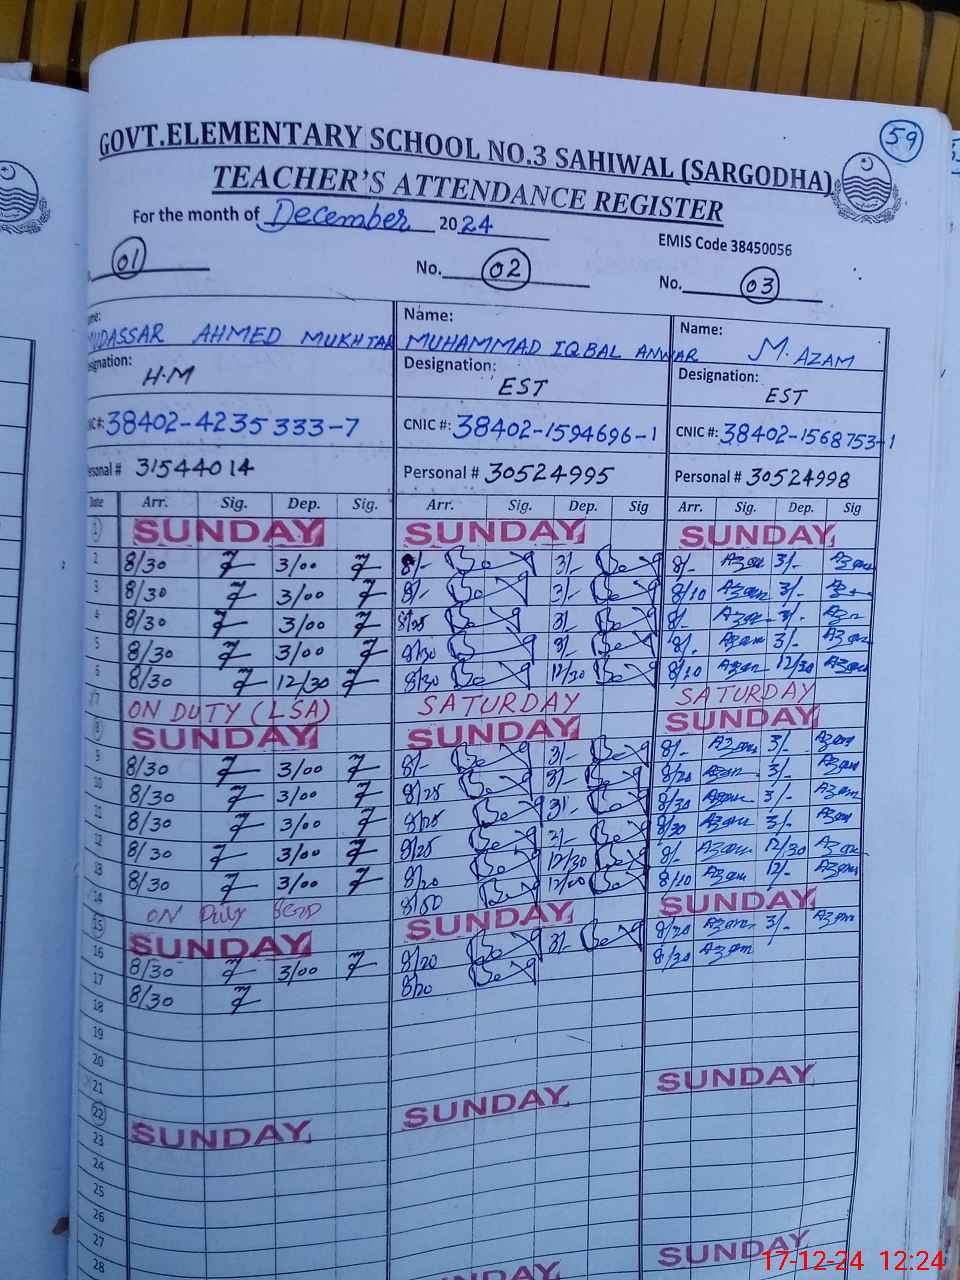 59
GOVT.ELEMENTARY SCHOOL NO.3 SAHIWAL (SARGODHA)
TEACHER'S ATTENDANCE REGISTER
For the month of December 2024
EMIS Code 38450056
01 No. 02 No. 03
Name: Name:
MUDASSAR AHMED MUKHTAR MUHAMMAD IQBAL ANWAR M. AZAM
Designation: Designation:
H.M EST EST
38402-4235333-7 CNIC #: 38402-1594696-1 CNIC #: 38402-1568753-1
31544014 Personal # 30524995 Personal # 30524998
Date Arr. Sig. Dep. Sig. Arr. Sig. Dep. Sig Arr. Sig. Dep. Sig
1 SUNDAY SUNDAY SUNDAY
2 8/30 3/00 8/- 3/- 8/- Azam 3/- Azam
3 8/30 3/00 8/- 3/- 8/10 Azam 3/-
4 8/30 3/00 8/25 3/- 8/- Azam 3/-
5 8/30 3/00 8/30 3/- 8/- Azam 3/- Azam
6 8/30 12/30 8/30 12/30 8/10 Azam 12/30 Azam
7 ON DUTY (LSA) SATURDAY SATURDAY
8 SUNDAY SUNDAY SUNDAY
9 8/30 3/00 8/- 3/- 8/- Azam 3/- Azam
10 8/30 3/00 8/25 3/- 8/20 Azam 3/- Azam
11 8/30 3/00 8/25 3/- 8/30 Azam 3/- Azam
12 8/30 3/00 8/25 3/- 8/30 Azam 3/- Azam
13 8/30 3/00 8/20 12/30 8/- Azam 12/30 Azam
14 ON Duty 12/00 8/10 Azam 12/- Azam
15 SUNDAY SUNDAY SUNDAY
16 8/30 3/00 8/20 3/- 8/20 Azam 3/- Azam
17 8/30 8/20 8/30 Azam
18
19
20
21 SUNDAY
22 SUNDAY SUNDAY
23
24
25
26
27
28 SUNDAY SUNDAY
17-12-24 12:24